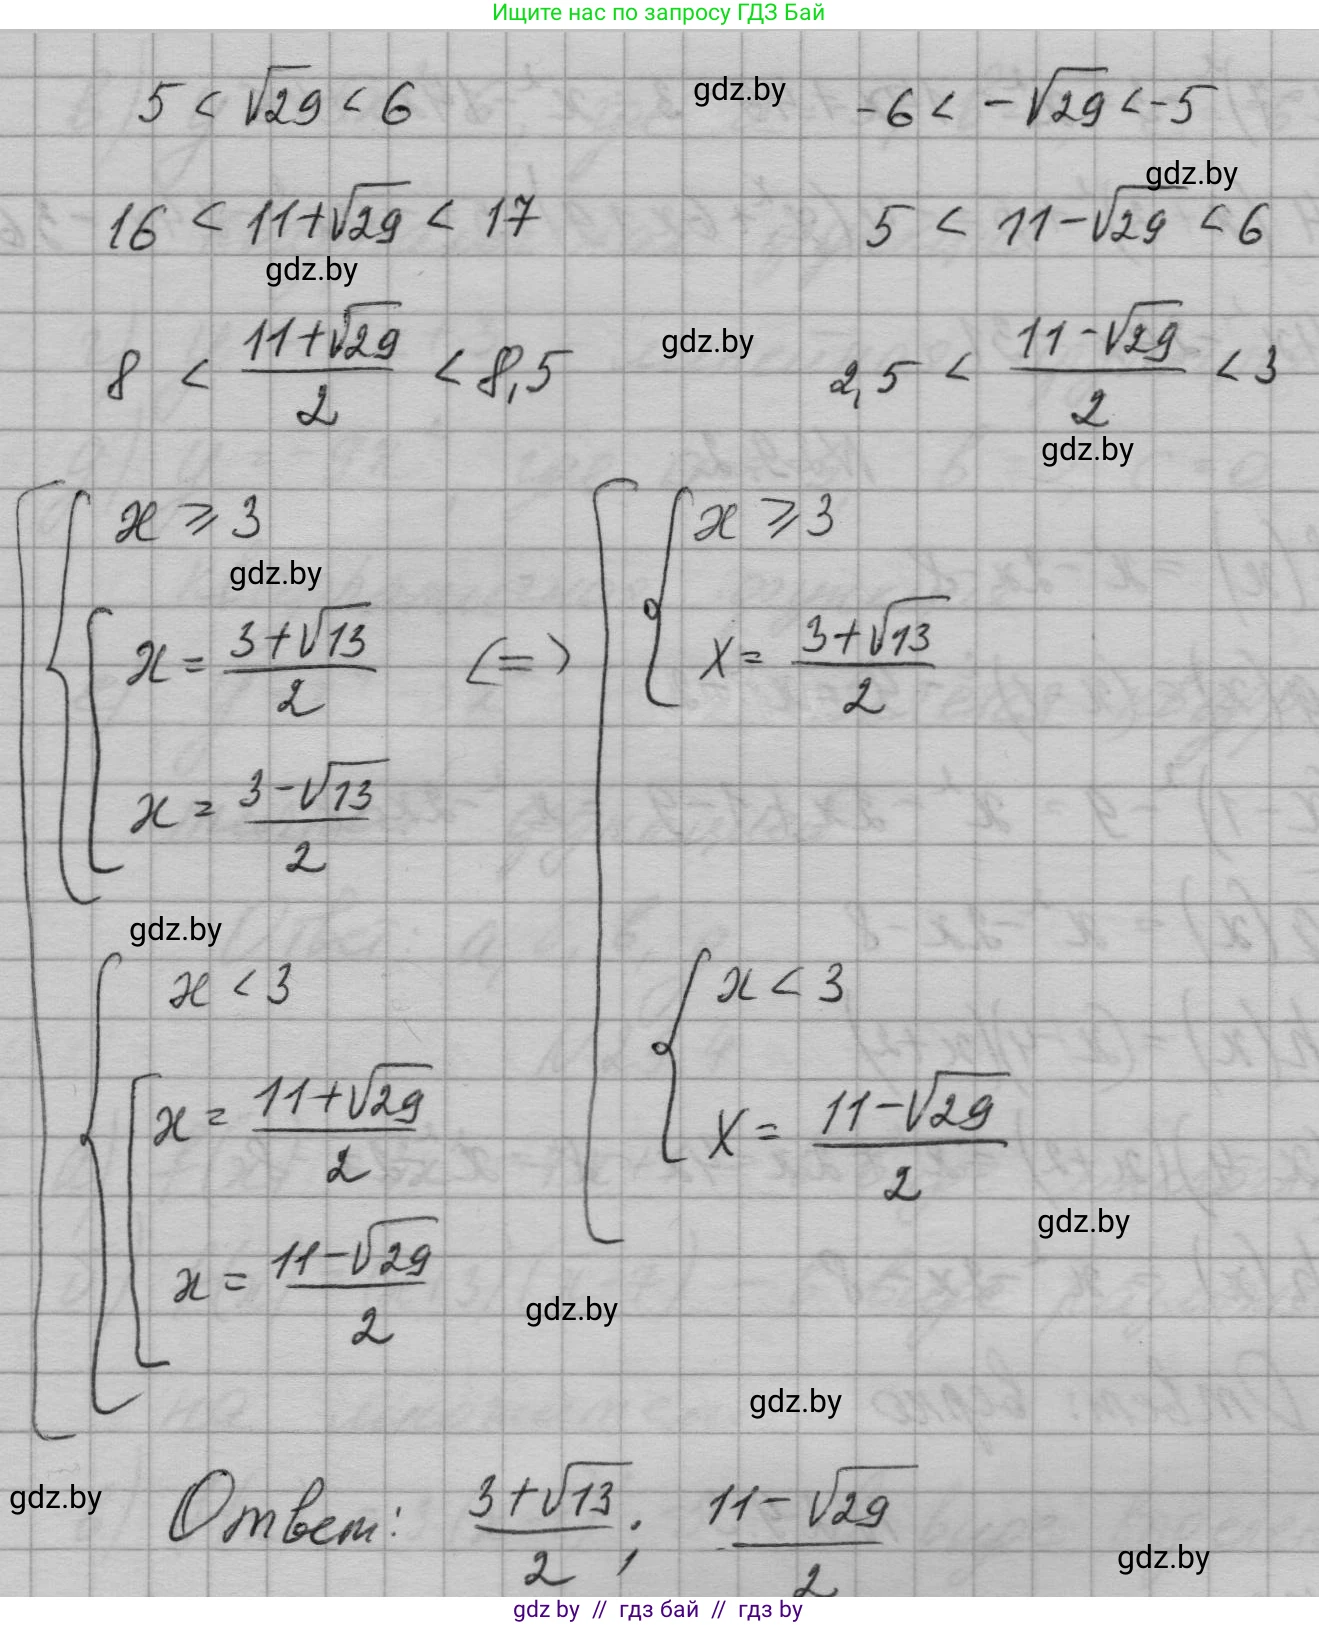 Ищите нас по запросу ГДЗ Бай
5 < √29 < 6
gdz.by
-6 < -√29 < -5
gdz.by
16 < 11+√29 < 17
5 < 11-√29 < 6
gdz.by
8 < (11+√29)/2 < 8,5
gdz.by
2,5 < (11-√29)/2 < 3
gdz.by
x ⩾ 3
x ⩾ 3
gdz.by
x = (3+√13)/2 <=> x = (3+√13)/2
x = (3-√13)/2
gdz.by
x < 3
x < 3
x = (11+√29)/2
x = (11-√29)/2
gdz.by
x = (11-√29)/2
gdz.by
gdz.by
gdz.by
Ответ: (3+√13)/2 ; (11-√29)/2
gdz.by
gdz by // гдз бай // гдз by